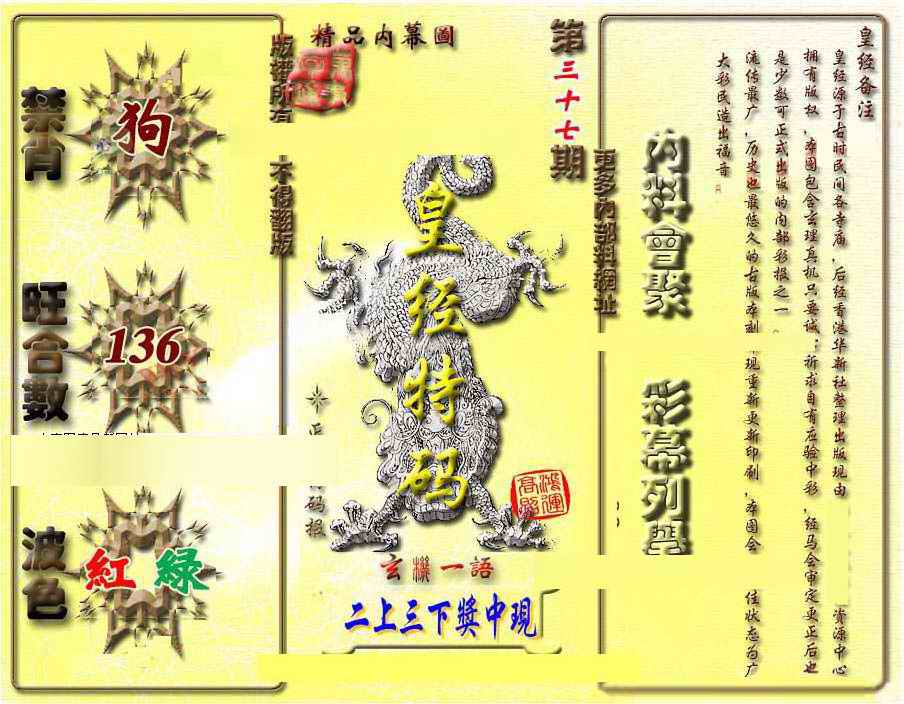 精品内幕圖
版權所有
不得翻版
第三十七期
更多內部料網址
禁肖
狗
旺合數
136
波色
紅 綠
皇经特码
鴻運高照
玄機一語
二上三下獎中現
内料會聚
彩幕列
皇经备注
皇经源于古时民间各寺庙，后经香港华新社整理出版现由
资源中心
拥有版权，本图包含玄理真机只要诚；祈求自有应验中彩，经马会审定更正后也
是少数可正式出版的内部彩报之一
流传最广，历史也最悠久的古版本刊
现重新更新印刷，本图会
佳状态为广
大彩民造出福音